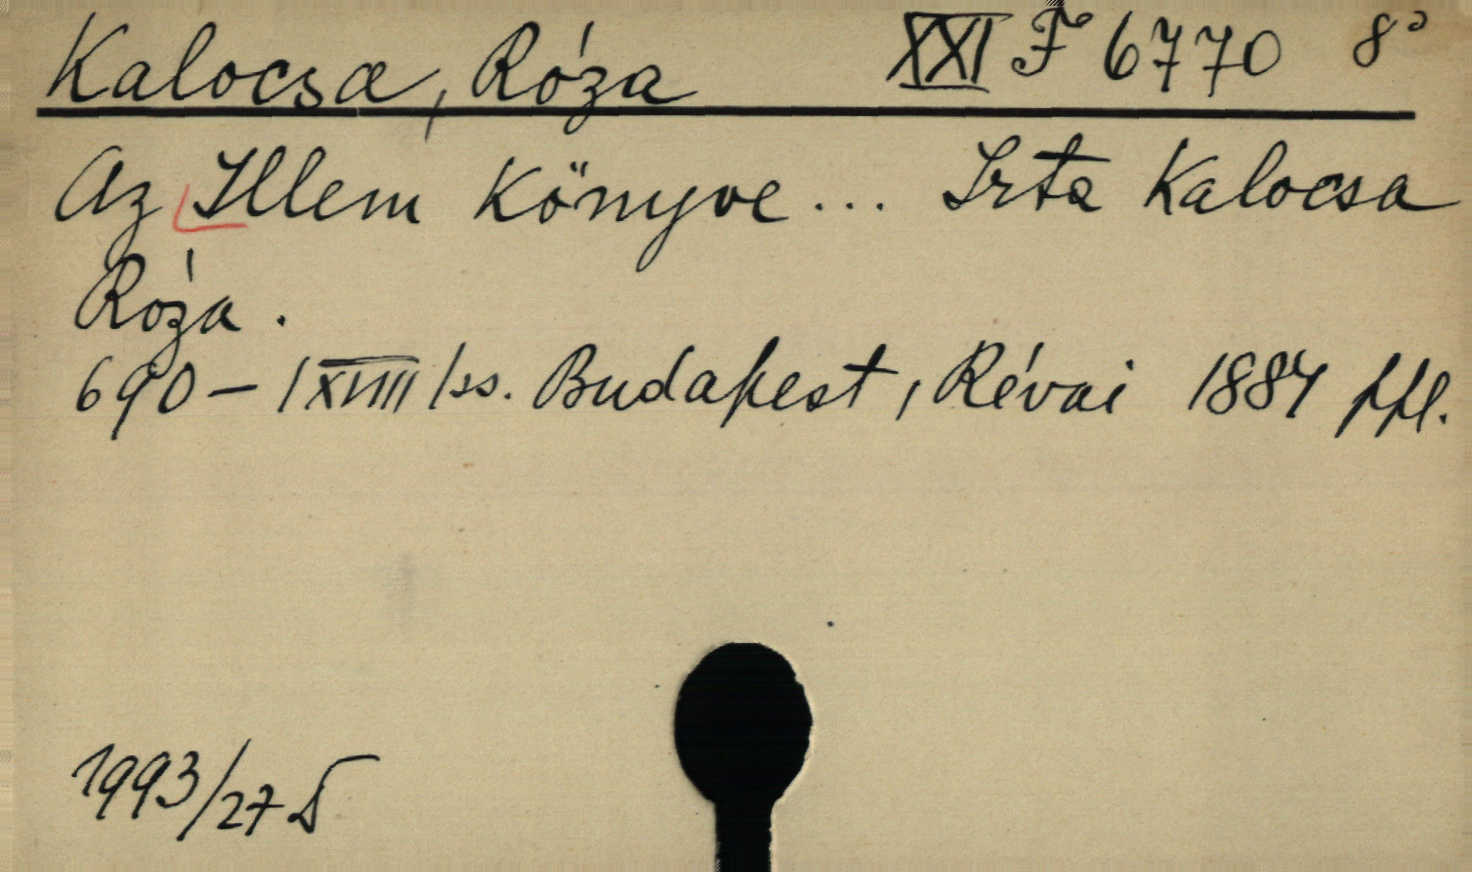 Kalocsa, Róza XXI F 6770 8°
Az Illem Könyve ... Irta Kalocsa
Róza.
690 – /XVIIII/ ss. Budapest, Révai 1884 ppl.
1993/27